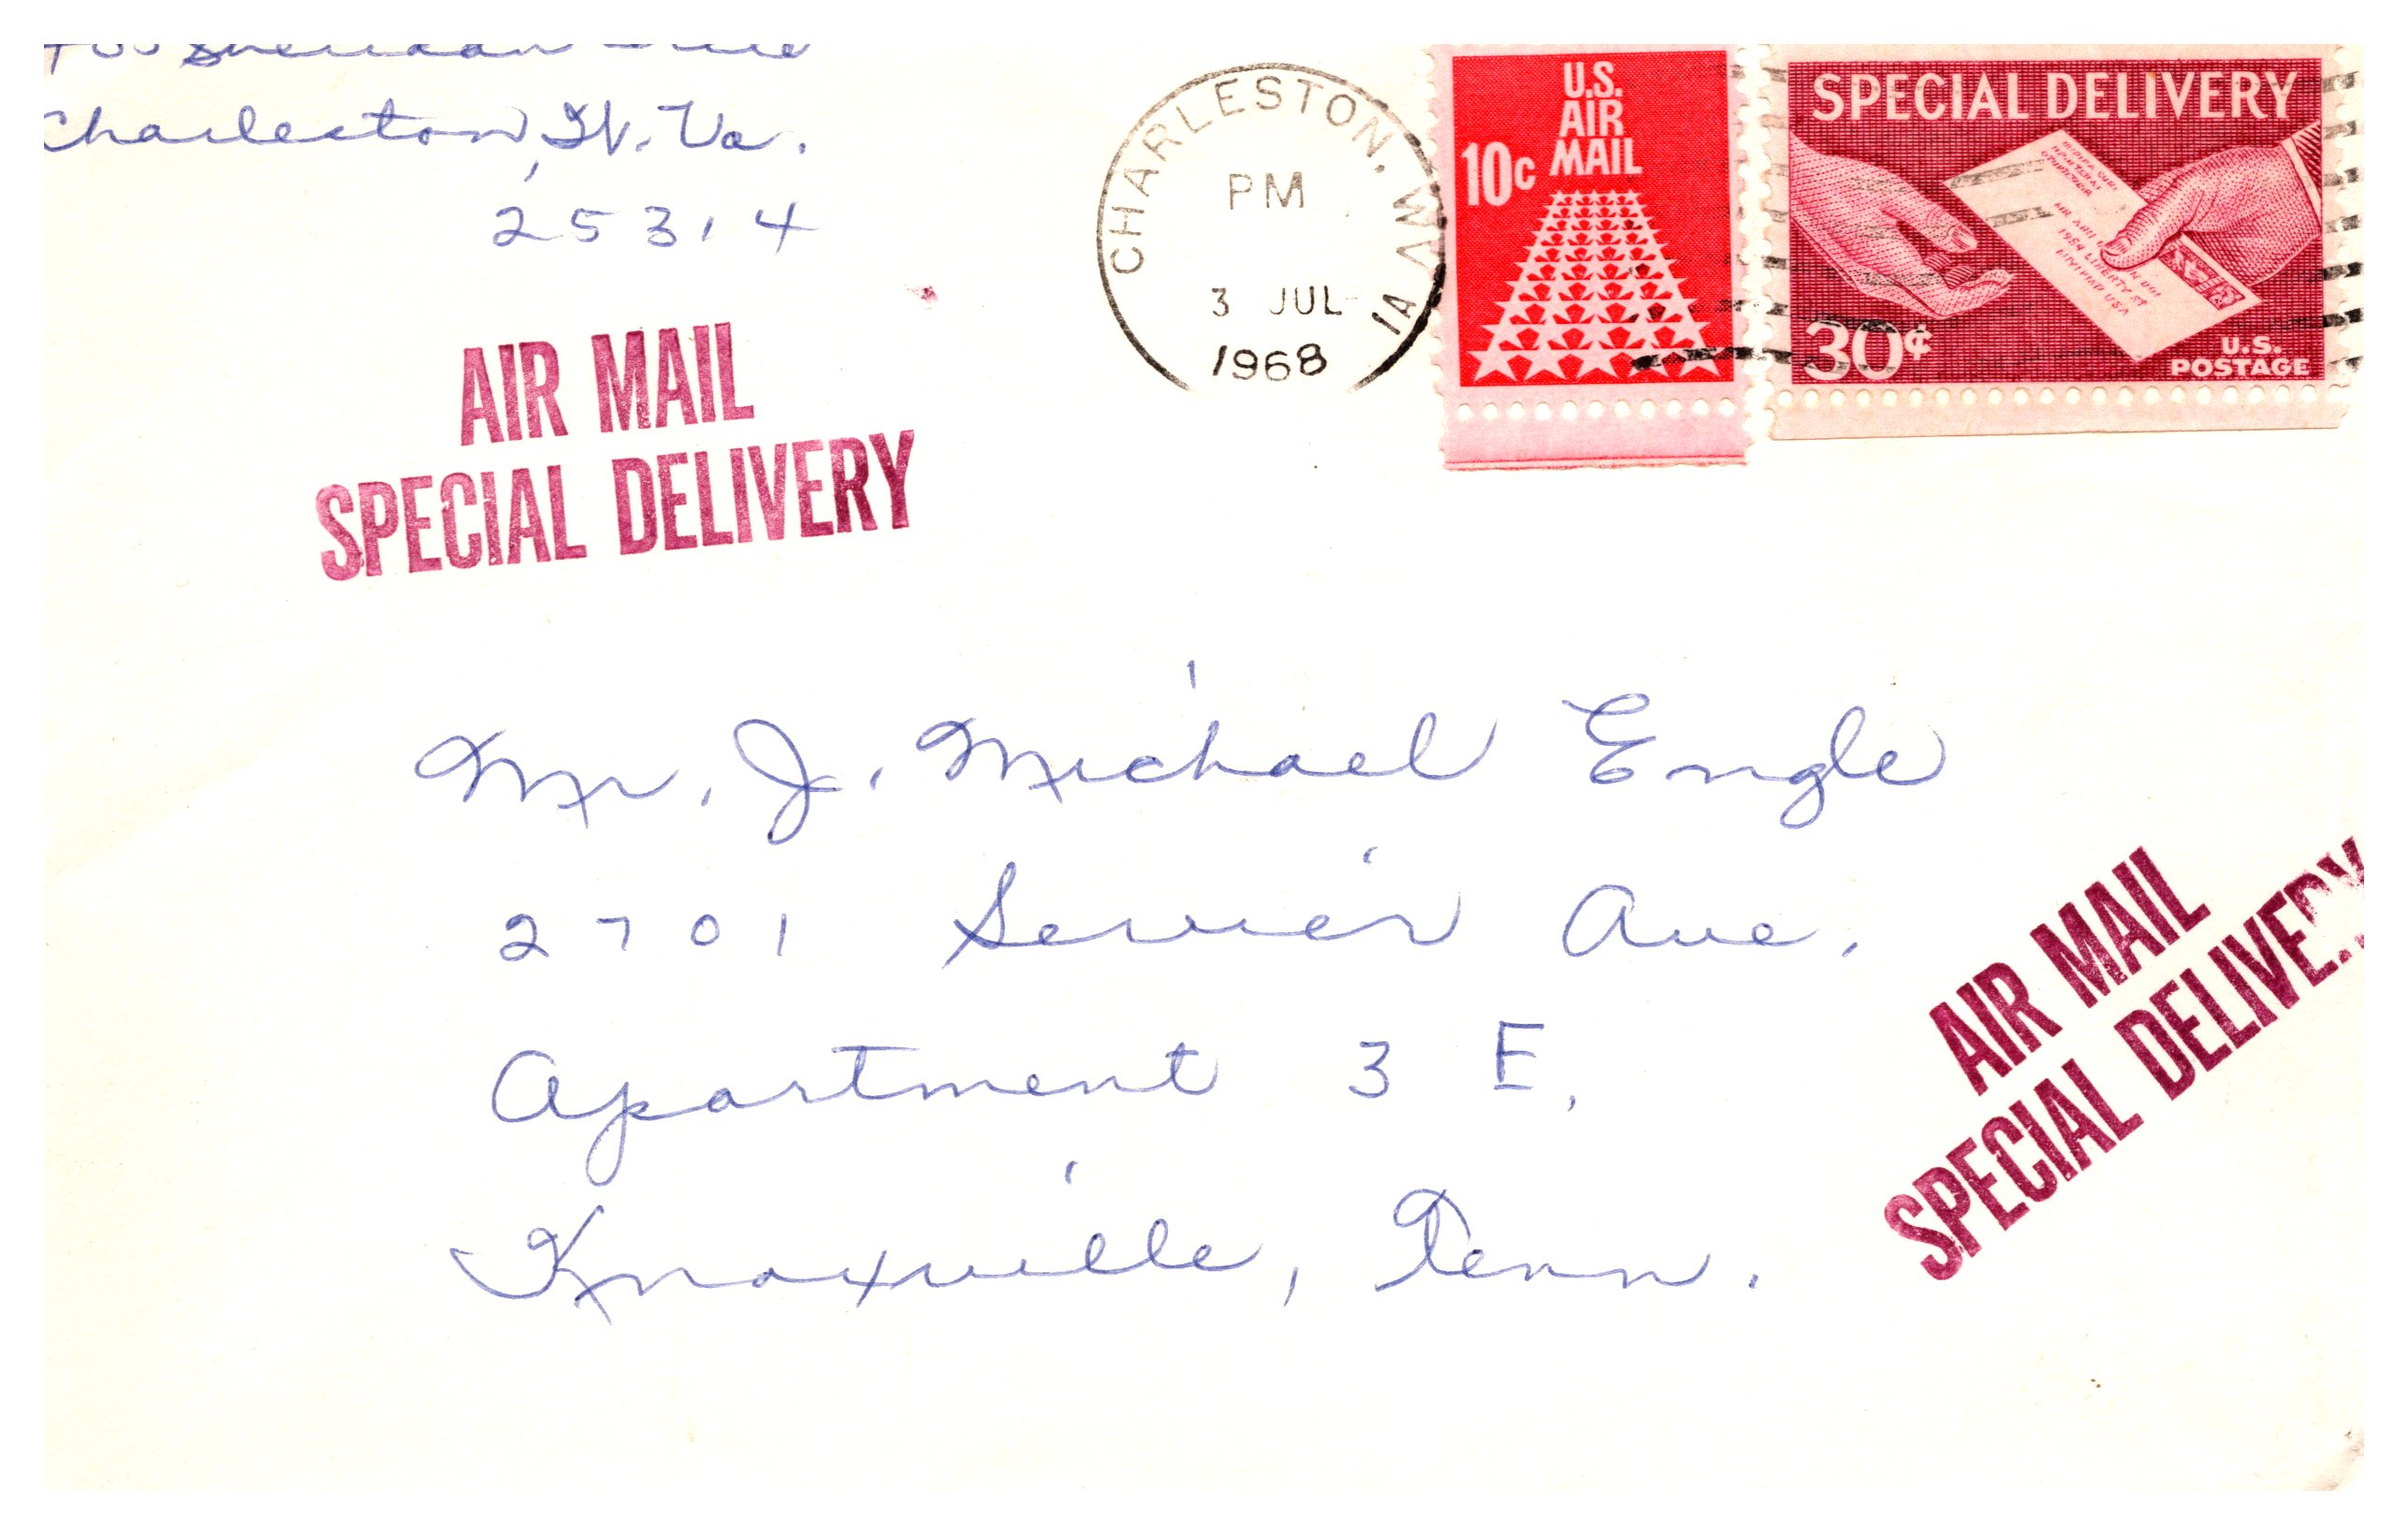 Charleston, W. Va.
25314
CHARLESTON, W VA
PM
3 JUL
1968
U.S.
AIR
MAIL
10c
SPECIAL DELIVERY
30¢
U.S.
POSTAGE
AIR MAIL
SPECIAL DELIVERY
Mr. J. Michael Engle
2701 Sevier Ave.
Apartment 3 E,
Knoxville, Tenn.
AIR MAIL
SPECIAL DELIVERY